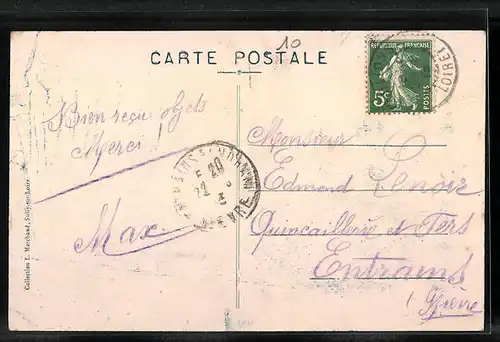 10
CARTE POSTALE
REPUBLIQUE FRANÇAISE
5c
POSTES
LOIRET
Bien reçu objets
Merci !
Max.
20
22
NIEVRE
Monsieur
Edmond Lenoir
Quincaillerie et Fers
Entrains
(Nièvre
Collection L. Marchand,